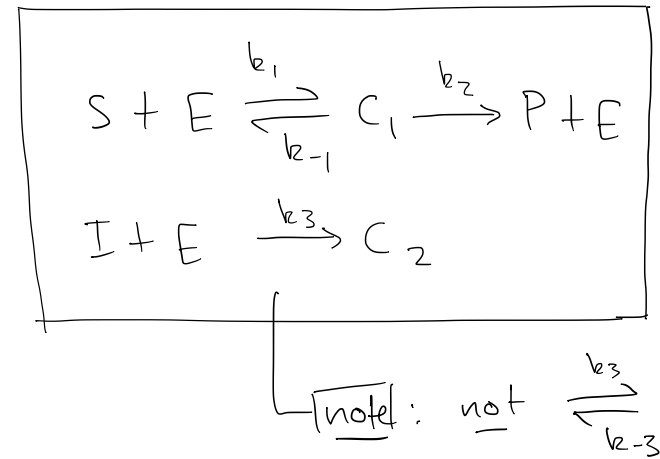 S + E k₁ ⇌ k₋₁ C₁ k₂ → P + E
I + E k₃ → C₂
note: not k₃ ⇌ k₋₃